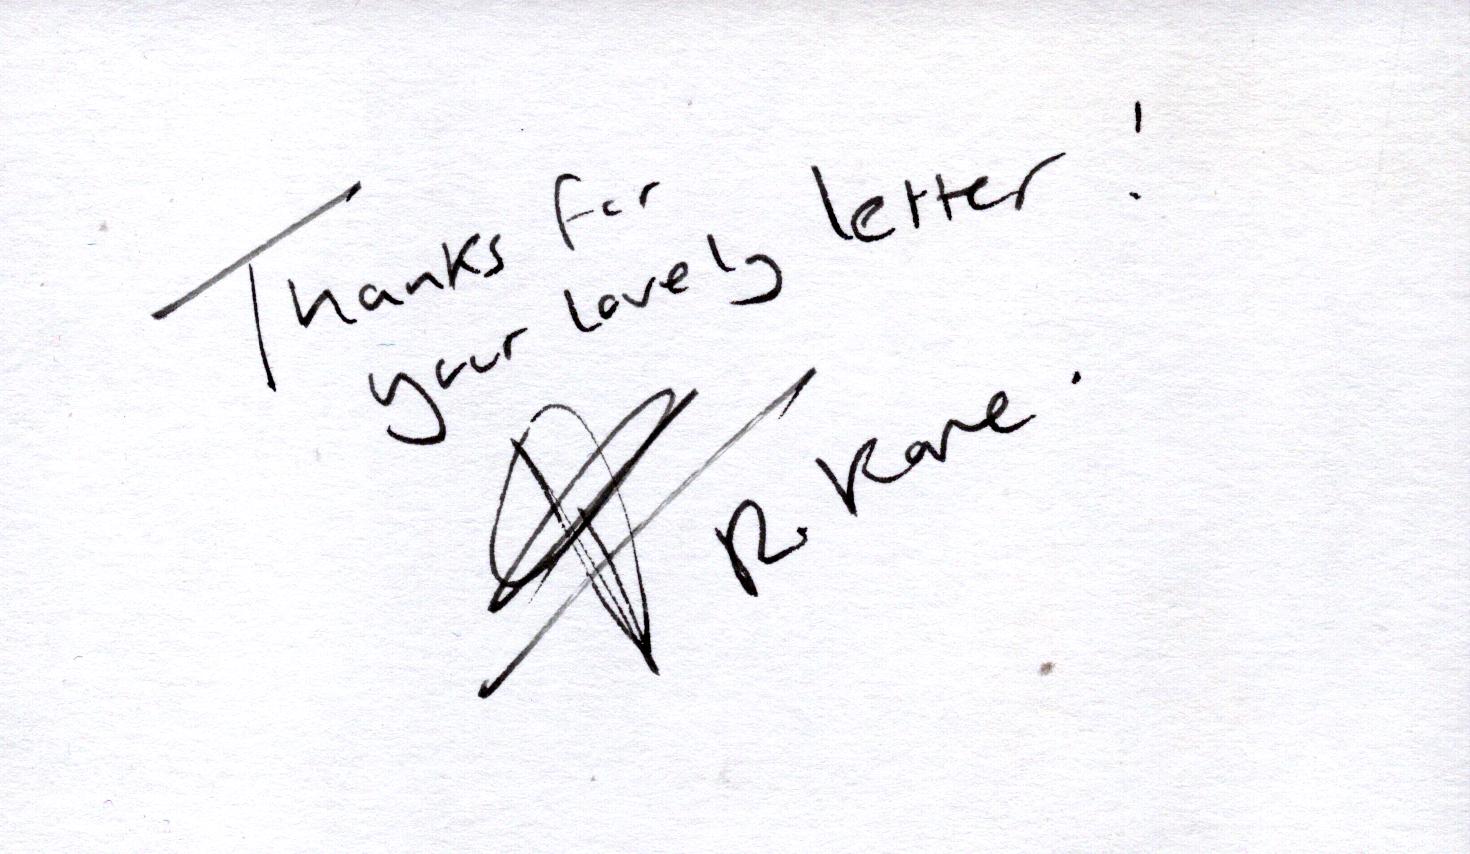 Thanks for
your lovely letter!
R. Kane.